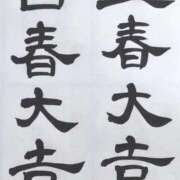 春大吉
春大吉